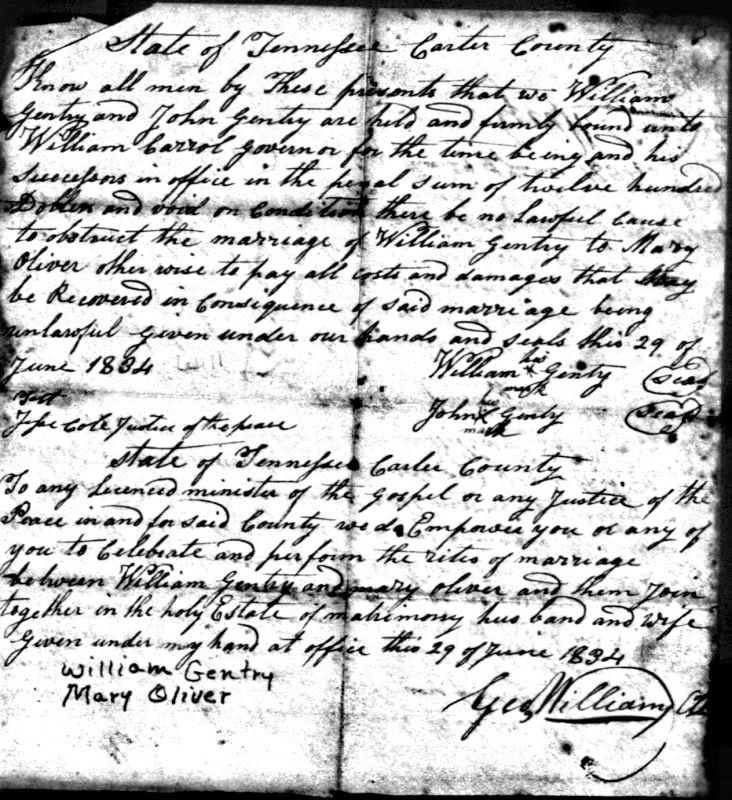 State of Tennessee Carter County
Know all men by These presents that we William
Gentry and John Gentry are held and firmly bound unto
William Carrol Governor for the time being and his
Successors in office in the penal sum of twelve hundred
Dollers and void on Condition there be no Lawful Cause
to obstruct the marriage of William Gentry to Mary
Oliver other wise to pay all costs and damages that may
be Recovered in Consequence of said marriage being
unlawful Given under our hands and seals this 29 of
June 1834
William his x mark Gentry (Seal)
John his x mark Gentry (Seal)
Test
Cote Justice of the peace
State of Tennessee Carter County
To any Licenced minister of the Gospel or any Justice of the
Peace in and for said County we do Empower you or any of
you to Celebrate and perform the rites of marriage
between William Gentry and mary Oliver and them Join
together in the holy Estate of matrimony husband and wife
Given under my hand at office this 29 of June 1834
William Gentry
Mary Oliver
Geo Williams